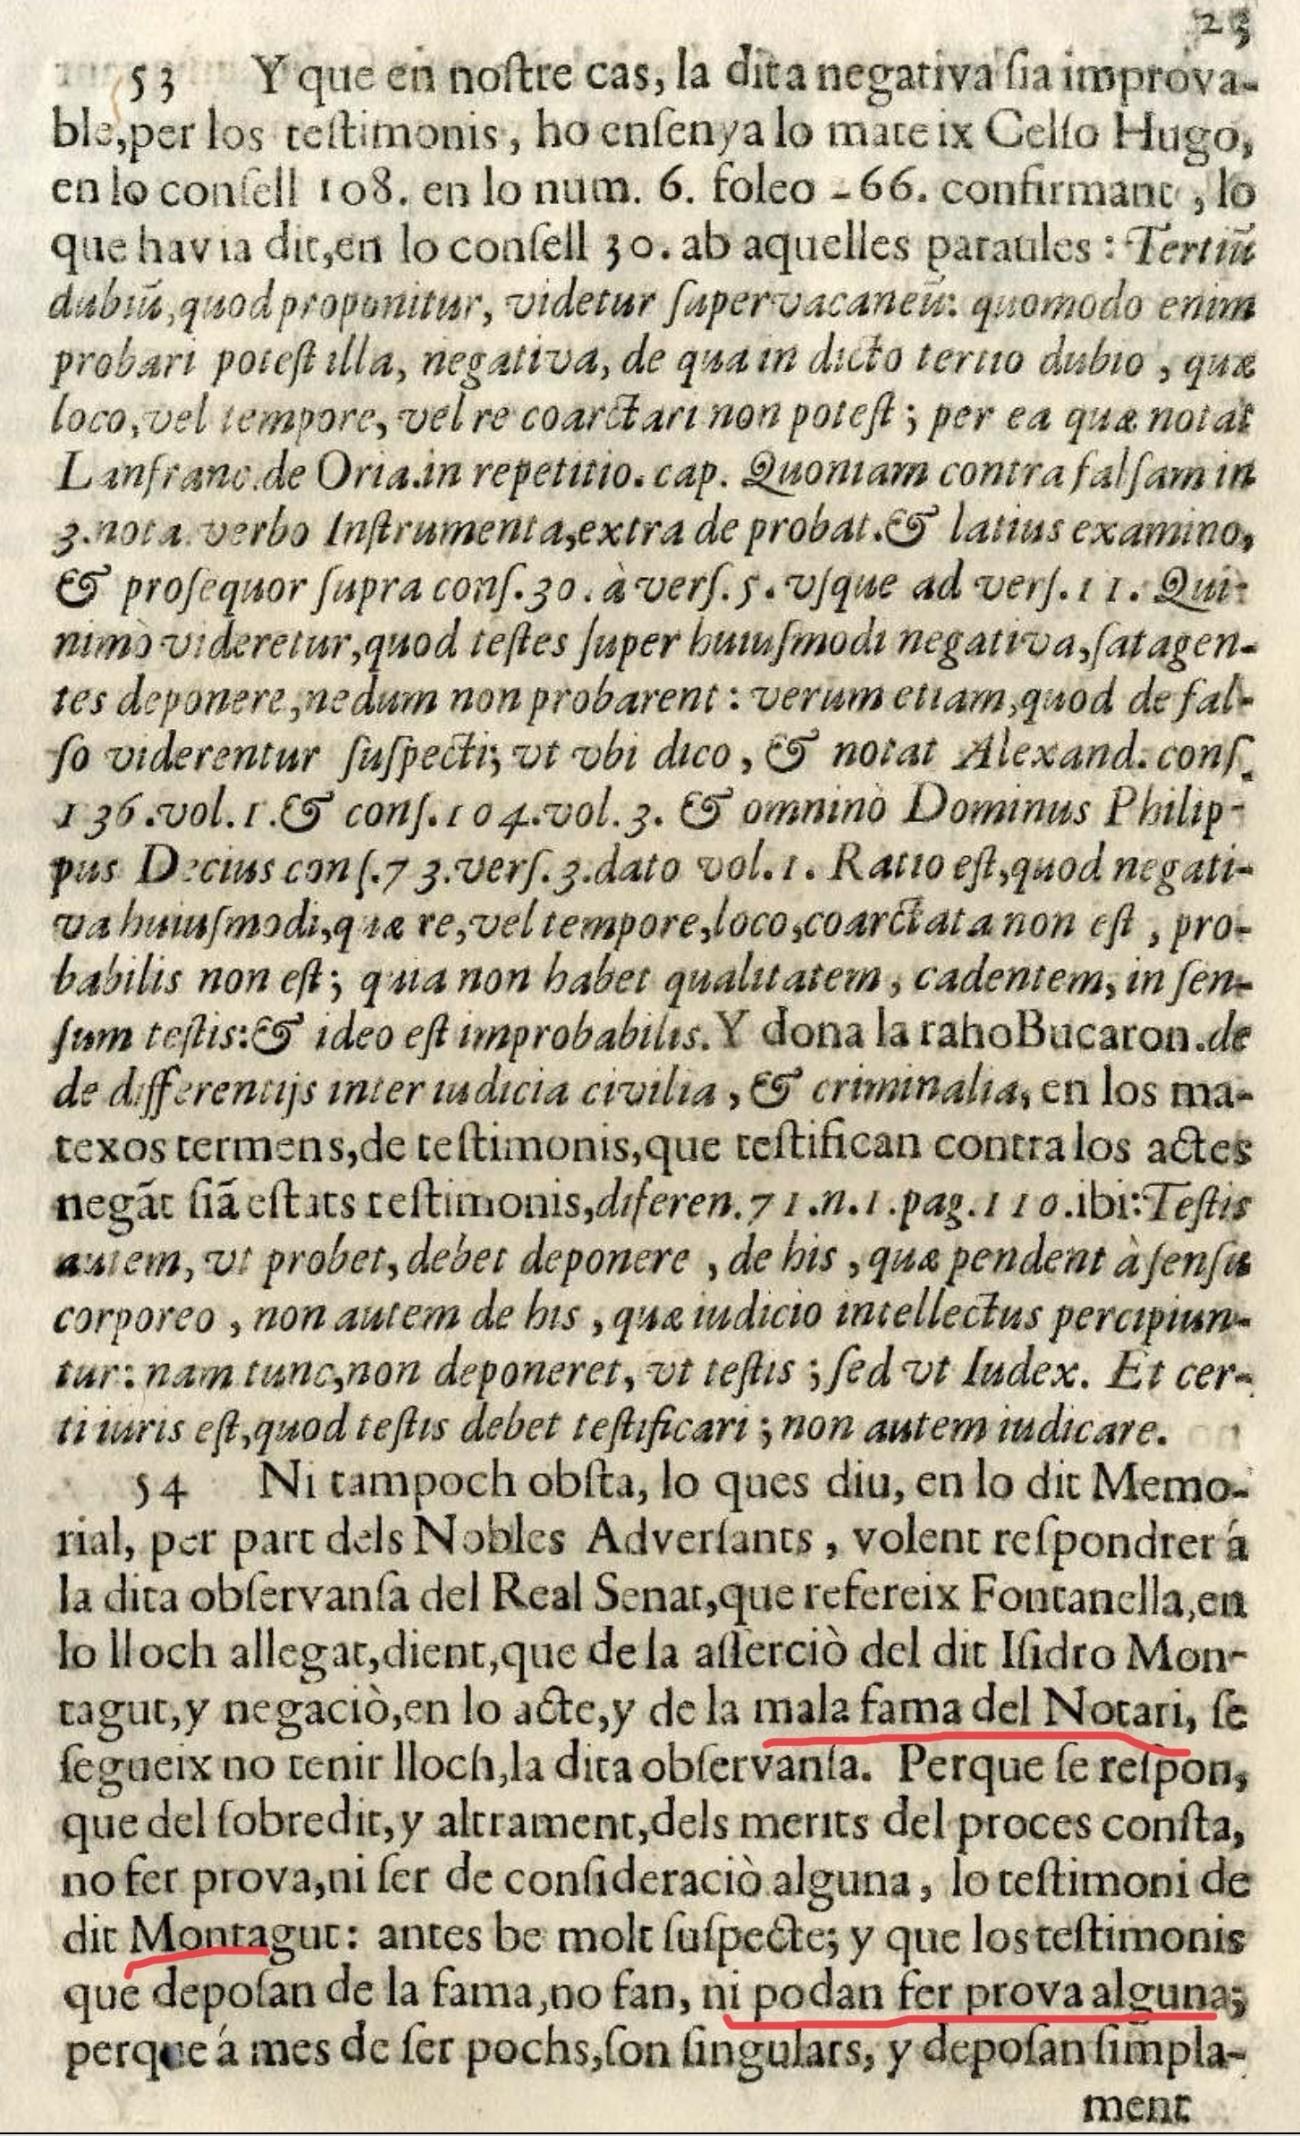 23
53 Y que en noſtre cas, la dita negativa ſia improva-
ble,per los teſtimonis, ho enſenya lo mateix Celſo Hugo,
en lo conſell 108. en lo num. 6. foleo 66. confirmant, lo
que havia dit,en lo conſell 30. ab aquelles paraules: Tertiũ
dubiũ,quod proponitur, videtur ſupervacaneũ: quomodo enim
probari poteſt illa, negativa, de qua in dicto tertio dubio, quæ
loco,vel tempore, vel re coarctari non poteſt; per ea quæ notat
Lanfranc.de Oria.in repetitio. cap. Quoniam contra falſam in
3.nota. verbo Inſtrumenta,extra de probat.& latius examino,
& proſequor ſupra conſ.30. à verſ.5. vſque ad verſ.11. Qui-
nimò videretur,quod teſtes ſuper huiuſmodi negativa,ſatagen-
tes deponere,nedum non probarent: verum etiam,quod de fal-
ſo viderentur ſuſpecti; vt vbi dico, & notat Alexand. conſ.
136.vol.1.& conſ.104.vol.3. & omninò Dominus Philip-
pus Decius conſ.73.verſ.3.dato vol.1. Ratio eſt,quod negati-
va huiuſmodi,quæ re,vel tempore,loco,coarctata non eſt, pro-
babilis non eſt; quia non habet qualitatem, cadentem, in ſen-
ſum teſtis:& ideo eſt improbabilis. Y dona la raho Bucaron.de
de differentijs inter iudicia civilia, & criminalia, en los ma-
texos termens,de teſtimonis,que teſtifican contra los actes
negãt ſiã eſtats teſtimonis,diferen.71.n.1.pag.110.ibi:Teſtis
autem, vt probet, debet deponere, de his, quæ pendent à ſenſu
corporeo, non autem de his, quæ iudicio intellectus percipiun-
tur: nam tunc,non deponeret, vt teſtis; ſed vt Iudex. Et cer-
ti iuris eſt,quod teſtis debet teſtificari; non autem iudicare.
54 Ni tampoch obſta, lo ques diu, en lo dit Memo-
rial, per part dels Nobles Adverſants, volent reſpondrer á
la dita obſervanſa del Real Senat,que refereix Fontanella,en
lo lloch allegat,dient,que de la aſſerciò del dit Iſidro Mon-
tagut,y negaciò,en lo acte,y de la mala fama del Notari, ſe
ſegueix no tenir lloch,la dita obſervanſa. Perque ſe reſpon,
que del ſobredit,y altrament,dels merits del proces conſta,
no fer prova,ni ſer de conſideraciò alguna, lo teſtimoni de
dit Montagut: antes be molt ſuſpecte; y que los teſtimonis
que depoſan de la fama,no fan, ni podan fer prova alguna;
perque á mes de ſer pochs,ſon ſingulars, y depoſan ſimpla-
ment